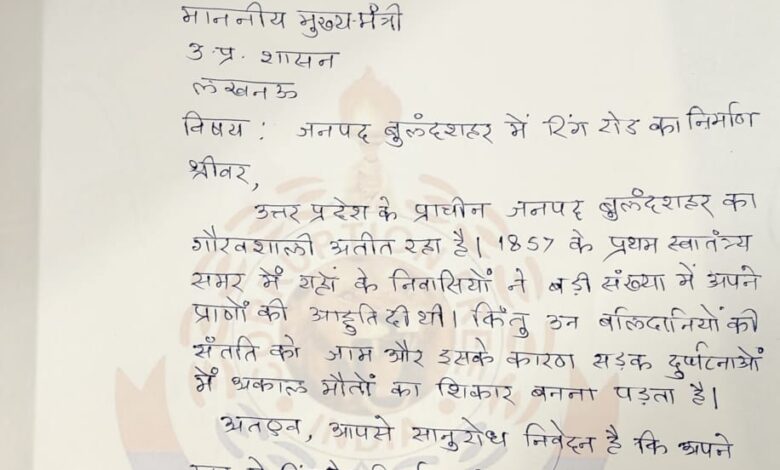 माननीय मुख्य-मंत्री
उ.प्र. शासन
लखनऊ
विषय : जनपद बुलंदशहर में रिंग रोड का निर्माण
श्रीवर,
उत्तर प्रदेश के प्राचीन जनपद बुलंदशहर का
गौरवशाली अतीत रहा है। 1857 के प्रथम स्वातंत्र्य
समर में यहाँ के निवासियों ने बड़ी संख्या में अपने
प्राणों की आहुति दी थी। किंतु उन बलिदानियों की
संतति को जाम और उसके कारण सड़क दुर्घटनाओं
में अकाल मौतों का शिकार बनना पड़ता है।
अतएव, आपसे सानुरोध निवेदन है कि अपने